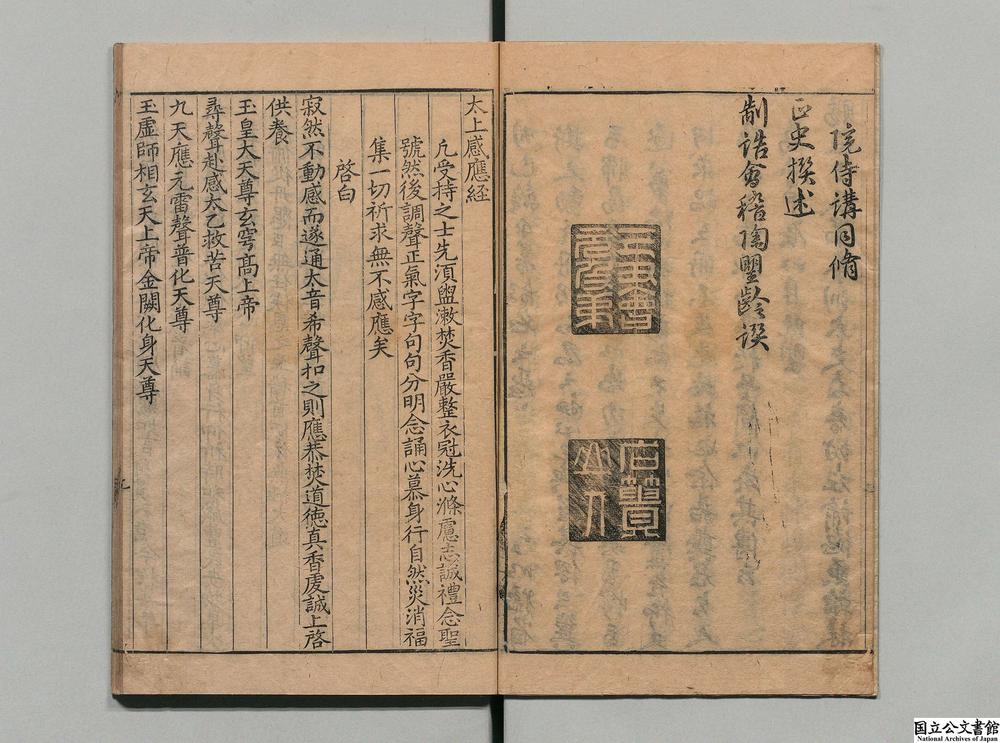 院侍講同脩
正史撰述
制誥會稽陶望齡譔
太上感應経
凢受持之士先湏盥漱焚香嚴整衣冠洗心滌慮志誠禮念聖
號然後調聲正氣字字句句分明念誦心慕身行自然災消福
集一切祈求無不感應矣
啓白
寂然不動感而遂通太音希聲扣之則應恭焚道徳真香虔誠上啓
供養
玉皇大天尊玄穹高上帝
尋聲赴感太乙救苦天尊
九天應元雷聲普化天尊
玉虛師相玄天上帝金闕化身天尊
国立公文書館
National Archives of Japan